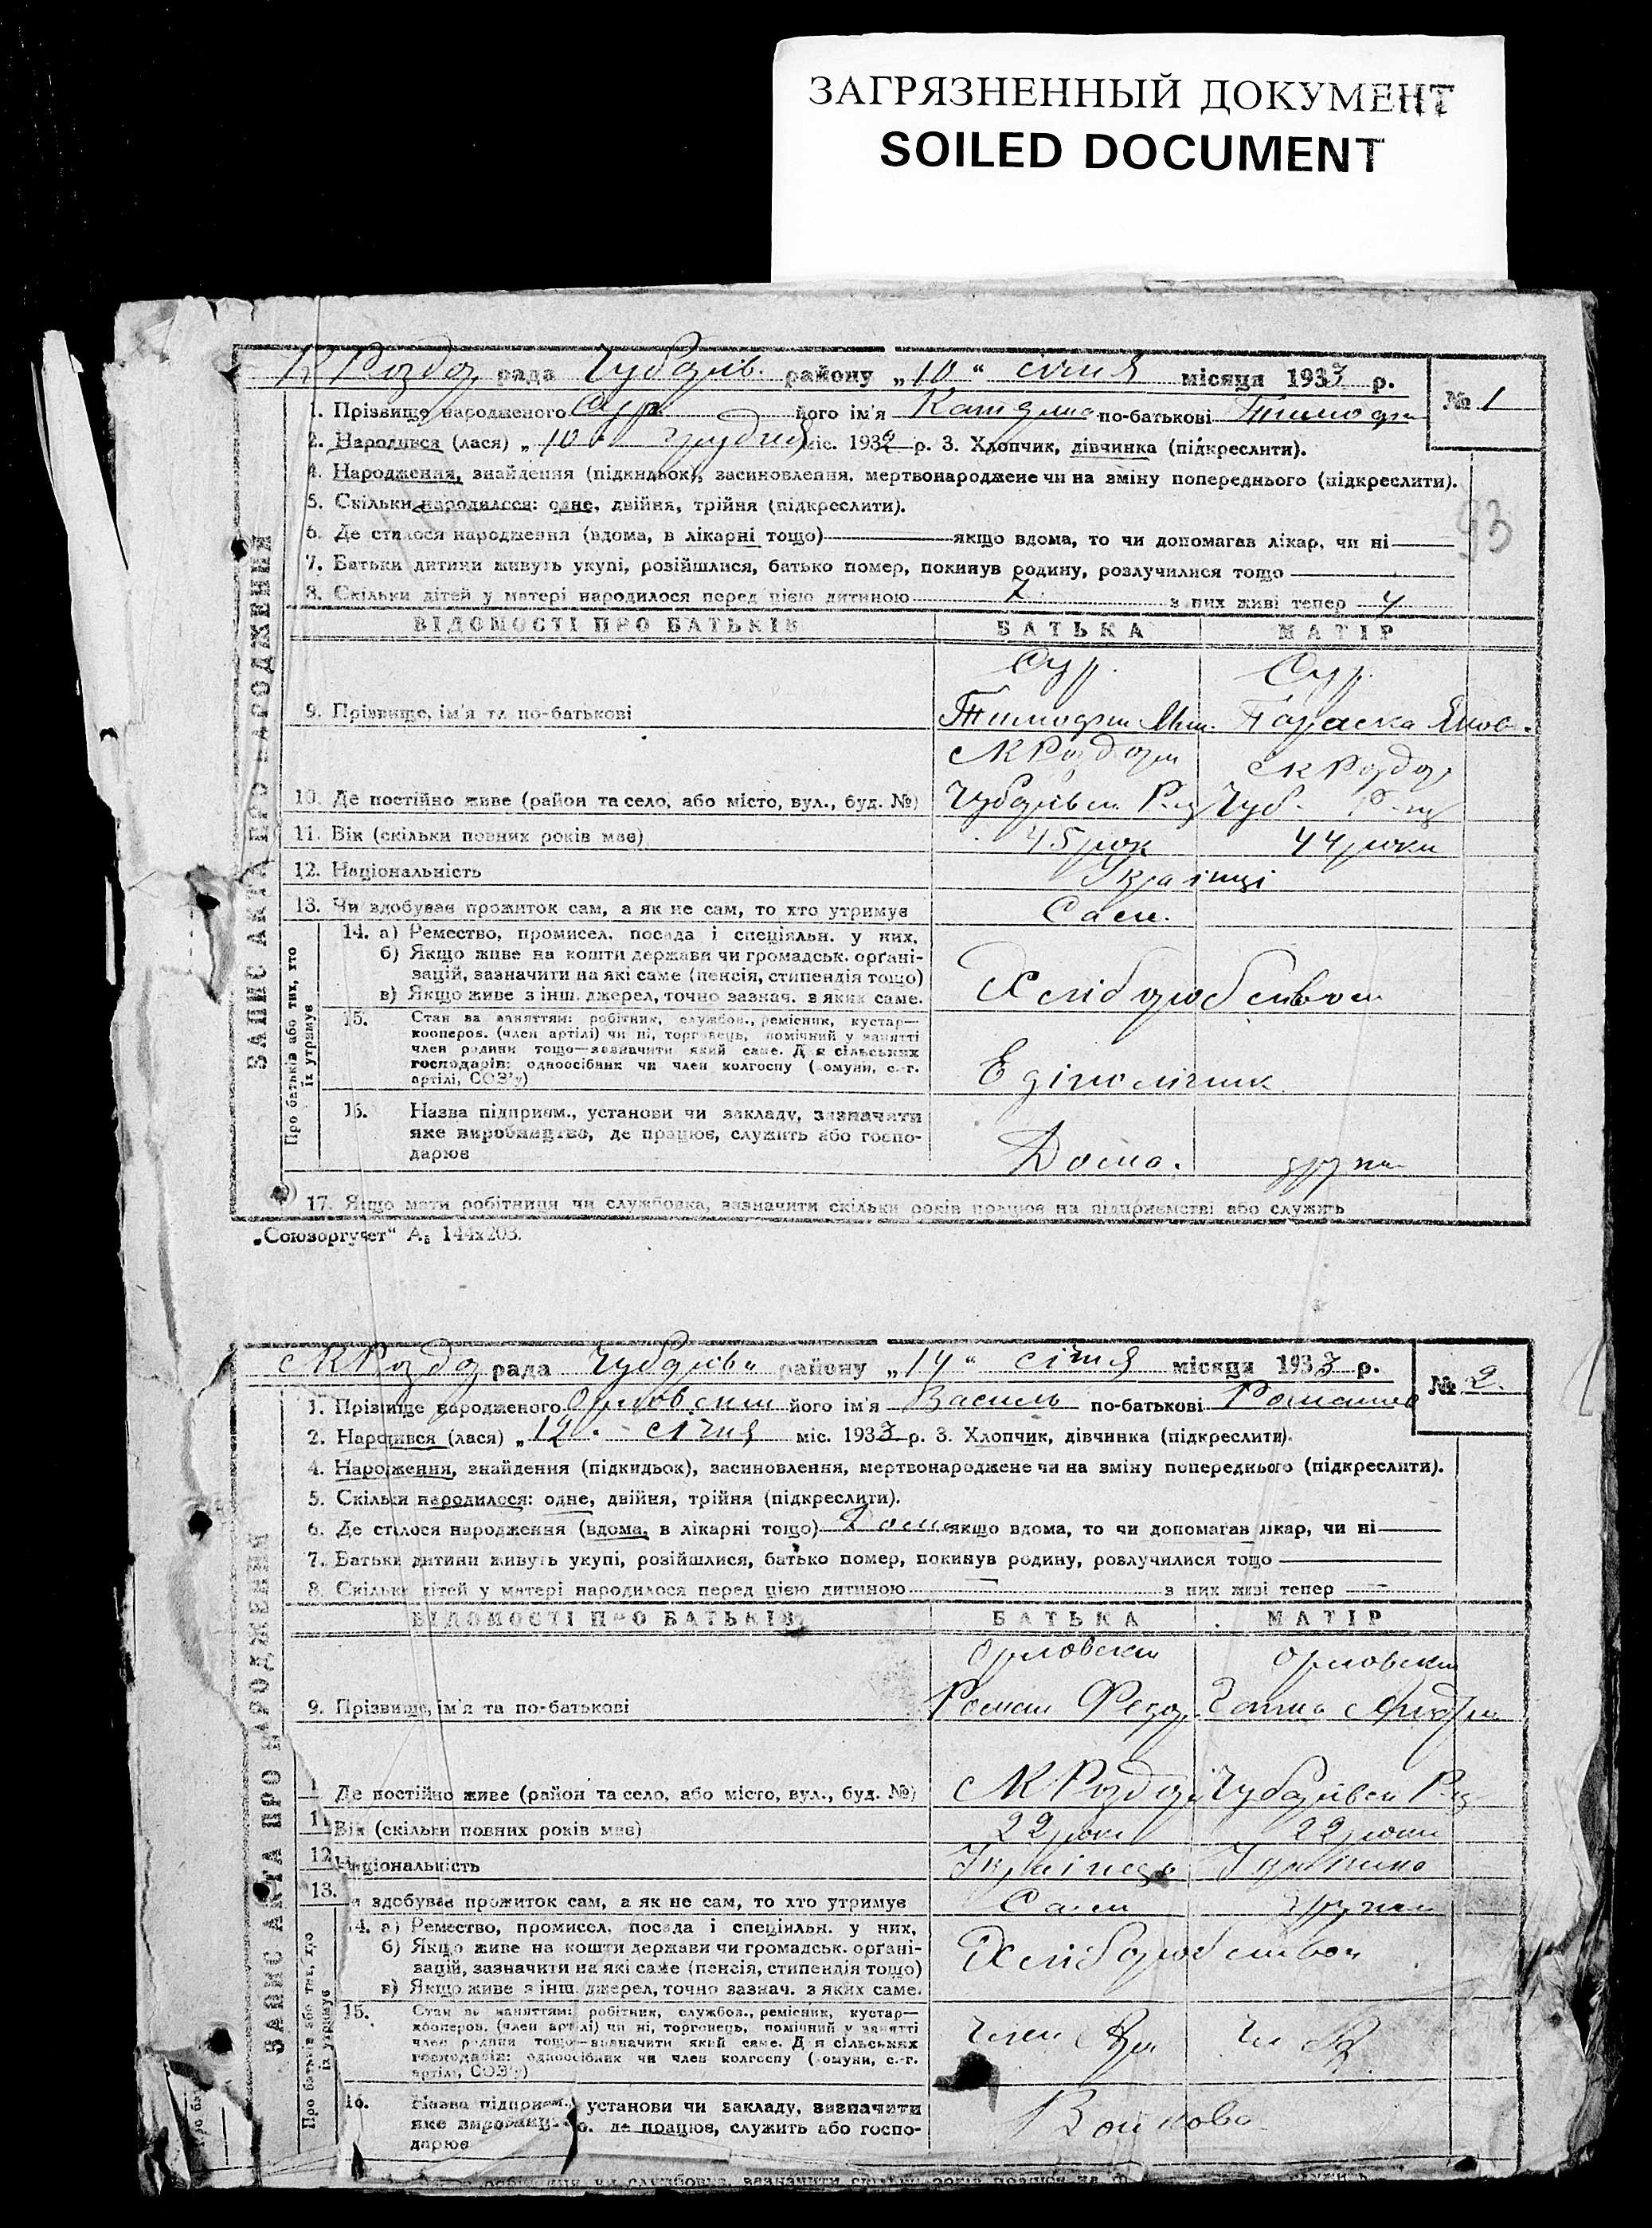 ЗАГРЯЗНЕННЫЙ ДОКУМЕНТ
SOILED DOCUMENT
рада Чубарів. району „10“ січня місяця 1933 р.
№ 1
1. Прізвище народженого Сур його ім'я Катерина по-батькові Тимофи
2. Народився (лася) „10“ грудня міс. 1932 р. 3. Хлопчик, дівчинка (підкреслити).
4. Народження, знайдення (підкидьок), засиновлення, мертвонароджене чи на зміну попереднього (підкреслити).
5. Скільки народилося: одне, двійня, трійня (підкреслити).
93
6. Де сталося народження (вдома, в лікарні тощо) якщо вдома, то чи допомагав лікар, чи ні
7. Батьки дитини живуть укупі, розійшлися, батько помер, покинув родину, розлучилися тощо
8. Скільки дітей у матері народилося перед цією дитиною 7 з них живі тепер 4
ЗАПИС АКТА ПРО НАРОДЖЕННЯ
ВІДОМОСТІ ПРО БАТЬКІВ БАТЬКА МАТІР
Сур. Сур.
9. Прізвище, ім'я та по-батькові Тимофи Параска Яков.
10. Де постійно живе (район та село, або місто, вул., буд. №) Р-ц Чуб. Р-ц
11. Вік (скільки повних років має) 45 рок 44 роки
12. Національність Українці
13. Чи здобуває прожиток сам, а як не сам, то хто утримує Сам.
Про батьків або тих, хто їх утримує
14. а) Ремество, промисел, посада і спеціяльн. у них,
б) Якщо живе на кошти держави чи громадськ. органі-
зацій, зазначити на які саме (пенсія, стипендія тощо)
в) Якщо живе з інш. джерел, точно зазнач. з яких саме.
Хліборобством
15. Стан за заняттям: робітник, службов., ремісник, кустар—
коопероз. (член артілі) чи ні, торговець, помічний у занятті
член родини тощо—зазначити який саме. Для сільських
господарів: одноосібник чи член колгоспу (комуни, с.-г.
артілі, СОЗ'у)
Едіноличник
16. Назва підприєм., установи чи закладу, зазначити
яке виробництво, де працює, служить або госпо-
дарює
Дома.
17. Якщо мати робітниця чи службовка, зазначити скільки років працює на підприємстві або служить
„Союзоргучет“ А₅ 144х203.
рада Чубарівс району „14“ січня місяця 1933 р.
№ 2.
1. Прізвище народженого Орловский його ім'я Василь по-батькові Романов
2. Народився (лася) „12“ січня міс. 1933 р. 3. Хлопчик, дівчинка (підкреслити).
4. Народження, знайдення (підкидьок), засиновлення, мертвонароджене чи на зміну попереднього (підкреслити).
5. Скільки народилося: одне, двійня, трійня (підкреслити).
6. Де сталося народження (вдома, в лікарні тощо) Дома якщо вдома, то чи допомагав лікар, чи ні
7. Батьки дитини живуть укупі, розійшлися, батько помер, покинув родину, розлучилися тощо
8. Скільки дітей у матері народилося перед цією дитиною — з них живі тепер —
ЗАПИС АКТА ПРО НАРОДЖЕННЯ
ВІДОМОСТІ ПРО БАТЬКІВ БАТЬКА МАТІР
Орловски Орловски
9. Прізвище, ім'я та по-батькові Роман Федор. Ганна
1 Де постійно живе (район та село, або місто, вул., буд. №) Р-ц
11 Вік (скільки повних років має) 22 роки 22 роки
12 Національність Українець Українка
13. здобуває прожиток сам, а як не сам, то хто утримує Сам
Про батьків або тих, хто їх утримує
14. а) Ремество, промисел, посада і спеціяльн. у них,
б) Якщо живе на кошти держави чи громадськ. органі-
зацій, зазначити на які саме (пенсія, стипендія тощо)
в) Якщо живе з інш. джерел, точно зазнач. з яких саме.
Хліборобством
15. Стан за заняттям: робітник, службов., ремісник, кустар—
коопероз. (член артілі) чи ні, торговець, помічний у занятті
член родини тощо—зазначити який саме. Для сільських
господарів: одноосібник чи член колгоспу (комуни, с.-г.
артілі, СОЗ'у)
Член
16. Назва підприєм., установи чи закладу, зазначити
яке виробництво, де працює, служить або госпо-
дарює
Войкова